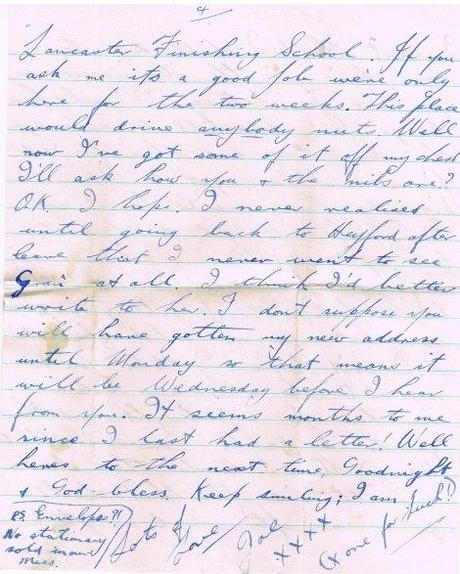 4
"Lancaster Finishing School". If you
ask me it's a good job we're only
here for the two weeks. This place
would drive anybody nuts. Well
now I've got some of it off my chest
I'll ask how you & the nibs are?
O.K. I hope. I never realised
until going back to Heyford after
leave that I never went to see
Gran at all. I think I'd better
write to her. I don't suppose you
will have gotten my new address
until Monday so that means it
will be Wednesday before I hear
from you. It seems months to me
since I last had a letter! Well
heres to the next time, Goodnight
& God-bless, Keep smiling; I am!
Lots of Love, Joe
xxxx
(x one for luck!)
P.S. Envelopes?!
No stationary
sold in our
Mess.